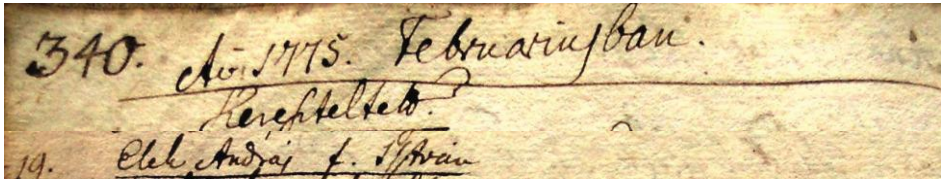 340. Aō 1775. Februariusban.
Keresztelteld.
19. Elek András f. István